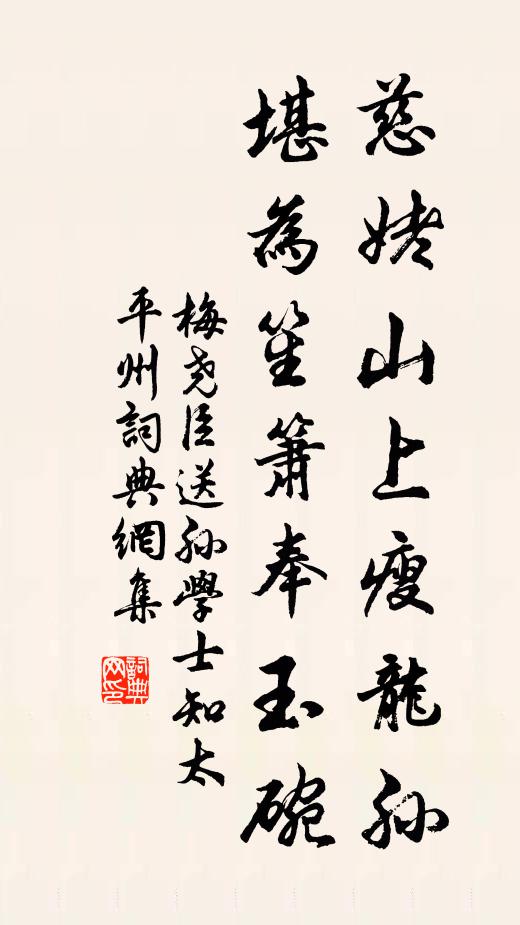 慈姥山上瘦龍孫
堪為笙簫奉玉碗
梅堯臣送孫學士知太
平州詞典網集
詞典网印